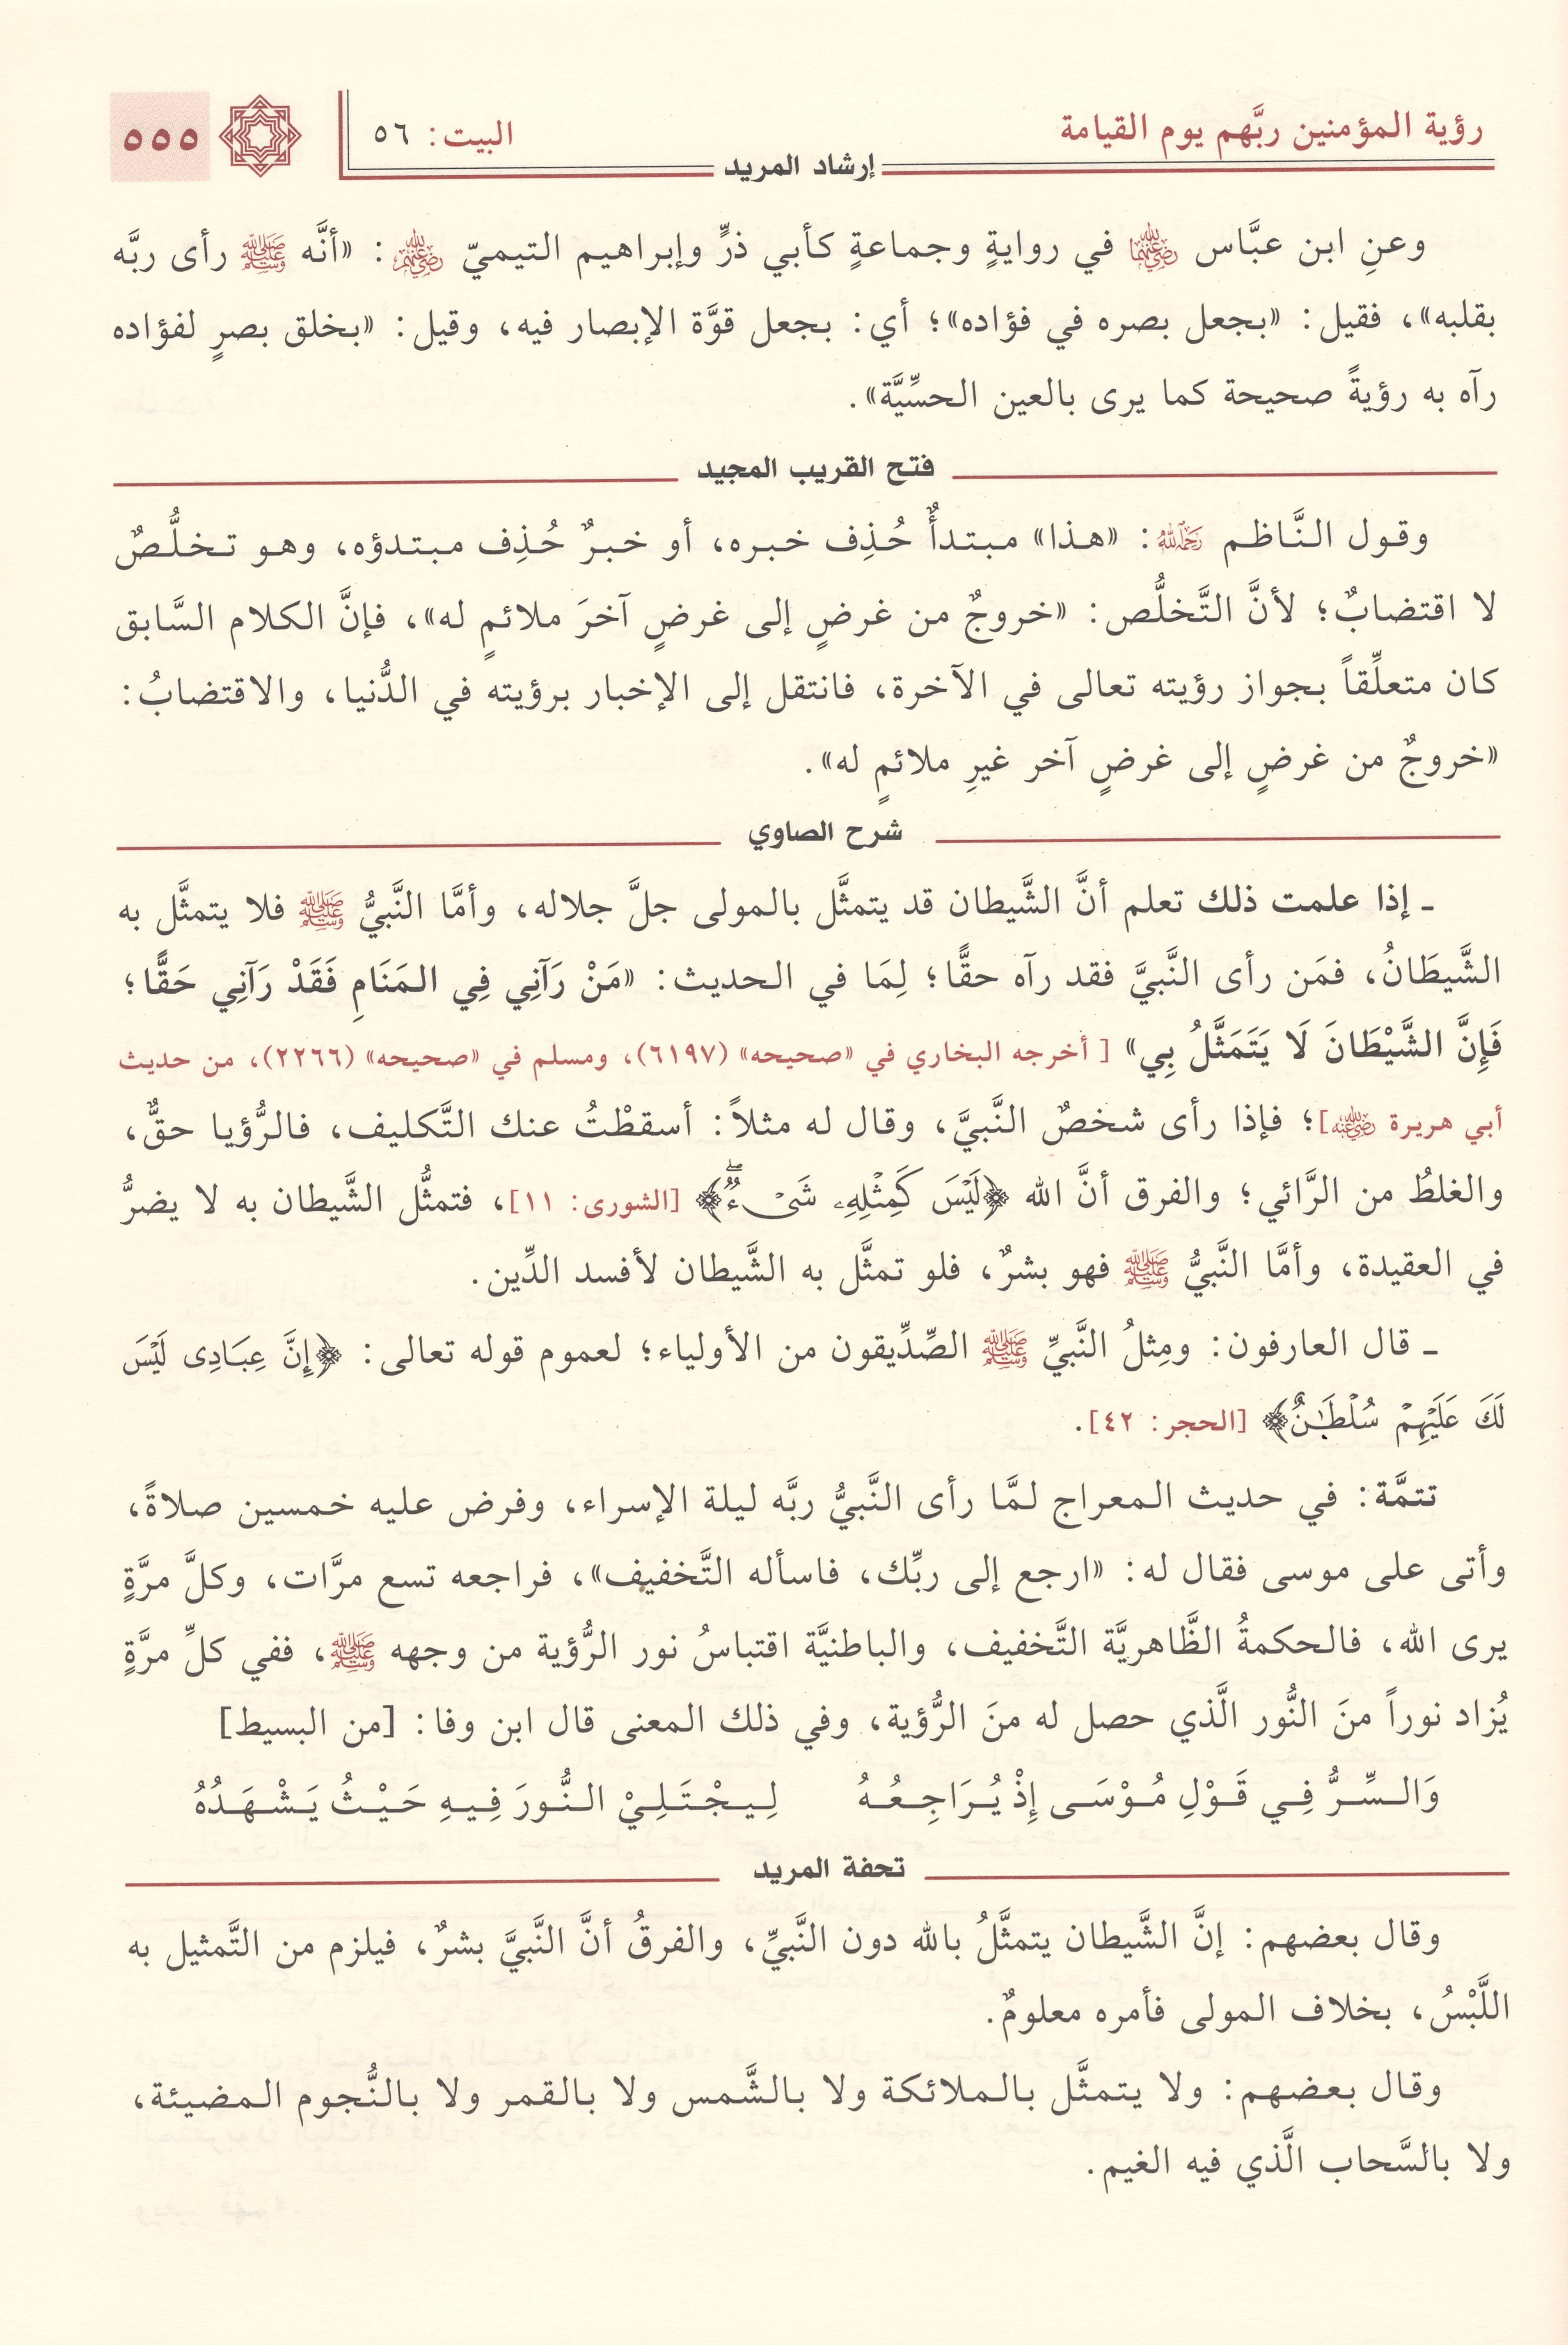 رؤية المؤمنين ربَّهم يوم القيامة
البيت: ٥٦
٥٥٥
إرشاد المريد
وعنِ ابن عبَّاس رضي الله عنهما في روايةٍ وجماعةٍ كأبي ذرٍّ وإبراهيم التيميّ رضي الله عنهم: «أنَّه ﷺ رأى ربَّه
بقلبه»، فقيل: «بجعل بصره في فؤاده»؛ أي: بجعل قوَّة الإبصار فيه، وقيل: «بخلق بصرٍ لفؤاده
رآه به رؤيةً صحيحة كما يرى بالعين الحسِّيَّة».
فتح القريب المجيد
وقول النَّاظم رحمه الله: «هذا» مبتدأٌ حُذِف خبره، أو خبرٌ حُذِف مبتدؤه، وهو تخلُّصٌ
لا اقتضابٌ؛ لأنَّ التَّخلُّص: «خروجٌ من غرضٍ إلى غرضٍ آخرَ ملائمٍ له»، فإنَّ الكلام السَّابق
كان متعلِّقاً بجواز رؤيته تعالى في الآخرة، فانتقل إلى الإخبار برؤيته في الدُّنيا، والاقتضابُ:
«خروجٌ من غرضٍ إلى غرضٍ آخر غيرِ ملائمٍ له».
شرح الصاوي
ـ إذا علمت ذلك تعلم أنَّ الشَّيطان قد يتمثَّل بالمولى جلَّ جلاله، وأمَّا النَّبيُّ ﷺ فلا يتمثَّل به
الشَّيطَانُ، فمَن رأى النَّبيَّ فقد رآه حقًّا؛ لِمَا في الحديث: «مَنْ رَآنِي فِي المَنَامِ فَقَدْ رَآنِي حَقًّا؛
فَإِنَّ الشَّيْطَانَ لَا يَتَمَثَّلُ بِي» [ أخرجه البخاري في «صحيحه» (٦١٩٧)، ومسلم في «صحيحه» (٢٢٦٦)، من حديث
أبي هريرة رضي الله عنه]؛ فإذا رأى شخصٌ النَّبيَّ، وقال له مثلاً: أسقطْتُ عنك التَّكليف، فالرُّؤيا حقٌّ،
والغلطُ من الرَّائي؛ والفرق أنَّ الله ﴿لَيۡسَ كَمِثۡلِهِۦ شَيۡءٞۖ﴾ [الشورى: ١١]، فتمثُّل الشَّيطان به لا يضرُّ
في العقيدة، وأمَّا النَّبيُّ ﷺ فهو بشرٌ، فلو تمثَّل به الشَّيطان لأفسد الدِّين.
ـ قال العارفون: ومِثلُ النَّبيِّ ﷺ الصِّدِّيقون من الأولياء؛ لعموم قوله تعالى: ﴿إِنَّ عِبَادِي لَيۡسَ
لَكَ عَلَيۡهِمۡ سُلۡطَٰنٌ﴾ [الحجر: ٤٢].
تتمَّة: في حديث المعراج لمَّا رأى النَّبيُّ ربَّه ليلة الإسراء، وفرض عليه خمسين صلاةً،
وأتى على موسى فقال له: «ارجع إلى ربِّك، فاسأله التَّخفيف»، فراجعه تسع مرَّات، وكلَّ مرَّةٍ
يرى الله، فالحكمةُ الظَّاهريَّة التَّخفيف، والباطنيَّة اقتباسُ نور الرُّؤية من وجهه ﷺ، ففي كلِّ مرَّةٍ
يُزاد نوراً منَ النُّور الَّذي حصل له منَ الرُّؤية، وفي ذلك المعنى قال ابن وفا: [من البسيط]
وَالسِّرُّ فِي قَوْلِ مُوْسَى إِذْ يُرَاجِعُهُ لِيجْتَلِيْ النُّورَ فِيهِ حَيْثُ يَشْهَدُهُ
تحفة المريد
وقال بعضهم: إنَّ الشَّيطان يتمثَّلُ بالله دون النَّبيِّ، والفرقُ أنَّ النَّبيَّ بشرٌ، فيلزم من التَّمثيل به
اللَّبْسُ، بخلاف المولى فأمره معلومٌ.
وقال بعضهم: ولا يتمثَّل بالملائكة ولا بالشَّمس ولا بالقمر ولا بالنُّجوم المضيئة،
ولا بالسَّحاب الَّذي فيه الغيم.